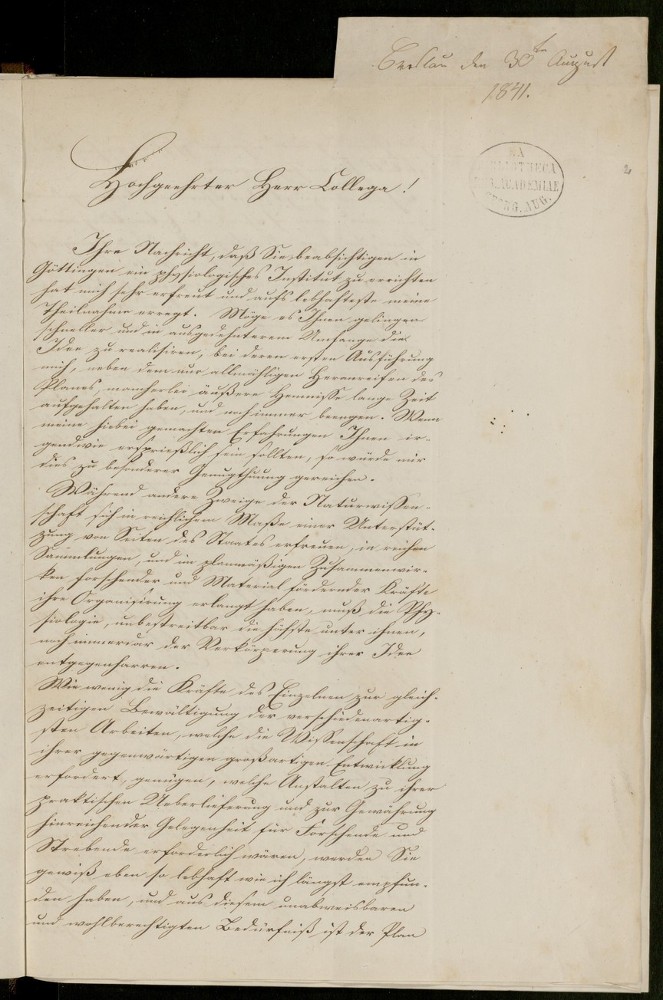 Breslau den 30ten August
1841.
Hochgeehrter Herr Collega!
BIBLIOTHECA
ACADEMIAE
GEORG. AUG.
2
Ihre Nachricht, daß Sie beabsichtigen in
Göttingen ein physiologisches Institut zu errichten
hat mich sehr erfreut und aufs lebhafteste meine
Theilnahme erregt. Möge es Ihnen gelingen
schneller und in ausgedehnterem Umfange die
Idee zu realisiren, bei deren ersten Ausführung
mich, neben dem nur allmähligen Heranreifen des
Planes, mancherlei äußere Hemnisse lange Zeit
aufgehalten haben, und noch immer beengen. Wenn
meine hiebei gemachten Erfahrungen Ihnen ir-
gendwie ersprießlich sein sollten, so würde mir
dies zu besonderer Genugthuung gereichen.
Während andere Zweige der Naturwissen-
schaft sich in reichlichem Maße einer Unterstüt-
zung von Seiten des Staates erfreuen, in reichen
Sammlungen, und im planmäßigen Zusammenwir-
ken forschender und Material fördernder Kräfte
ihre Organisirung erlangt haben, muß die Phy-
siologie, unbestreitbar die höchste unter ihnen,
noch immerdar der Verkörperung ihrer Idee
entgegenharren.
Wie wenig die Kräfte des Einzelnen zur gleich-
zeitigen Bewältigung der verschiedenartig-
sten Arbeiten, welche die Wissenschaft in
ihrer gegenwärtigen großartigen Entwicklung
erfordert, genügen, welche Anstalten zu ihrer
praktischen Ueberlieferung und zur Gewährung
hinreichender Gelegenheit für Forschende und
Strebende erforderlich wären, werden Sie
gewiß eben so lebhaft wie ich längst empfun-
den haben, und aus diesem unabweisbaren
und wohlberechtigten Bedürfniß ist der Plan